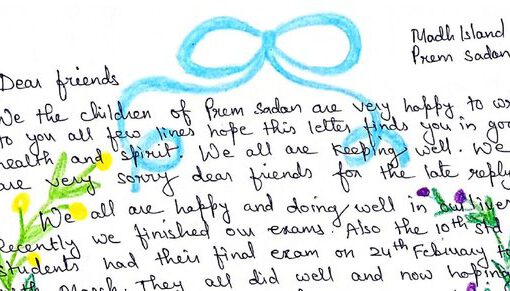 Madh Island
Prem Sadan
Dear friends
We the children of Prem Sadan are very happy to
to you all few lines hope this letter finds you in
health and spirit. We all are keeping well. We
are very sorry dear friends for the late reply
We all are happy and doing well in our lives
Recently we finished our exams. Also the 10th std
students had their final exam on 24th February
March. They all did well and now hoping